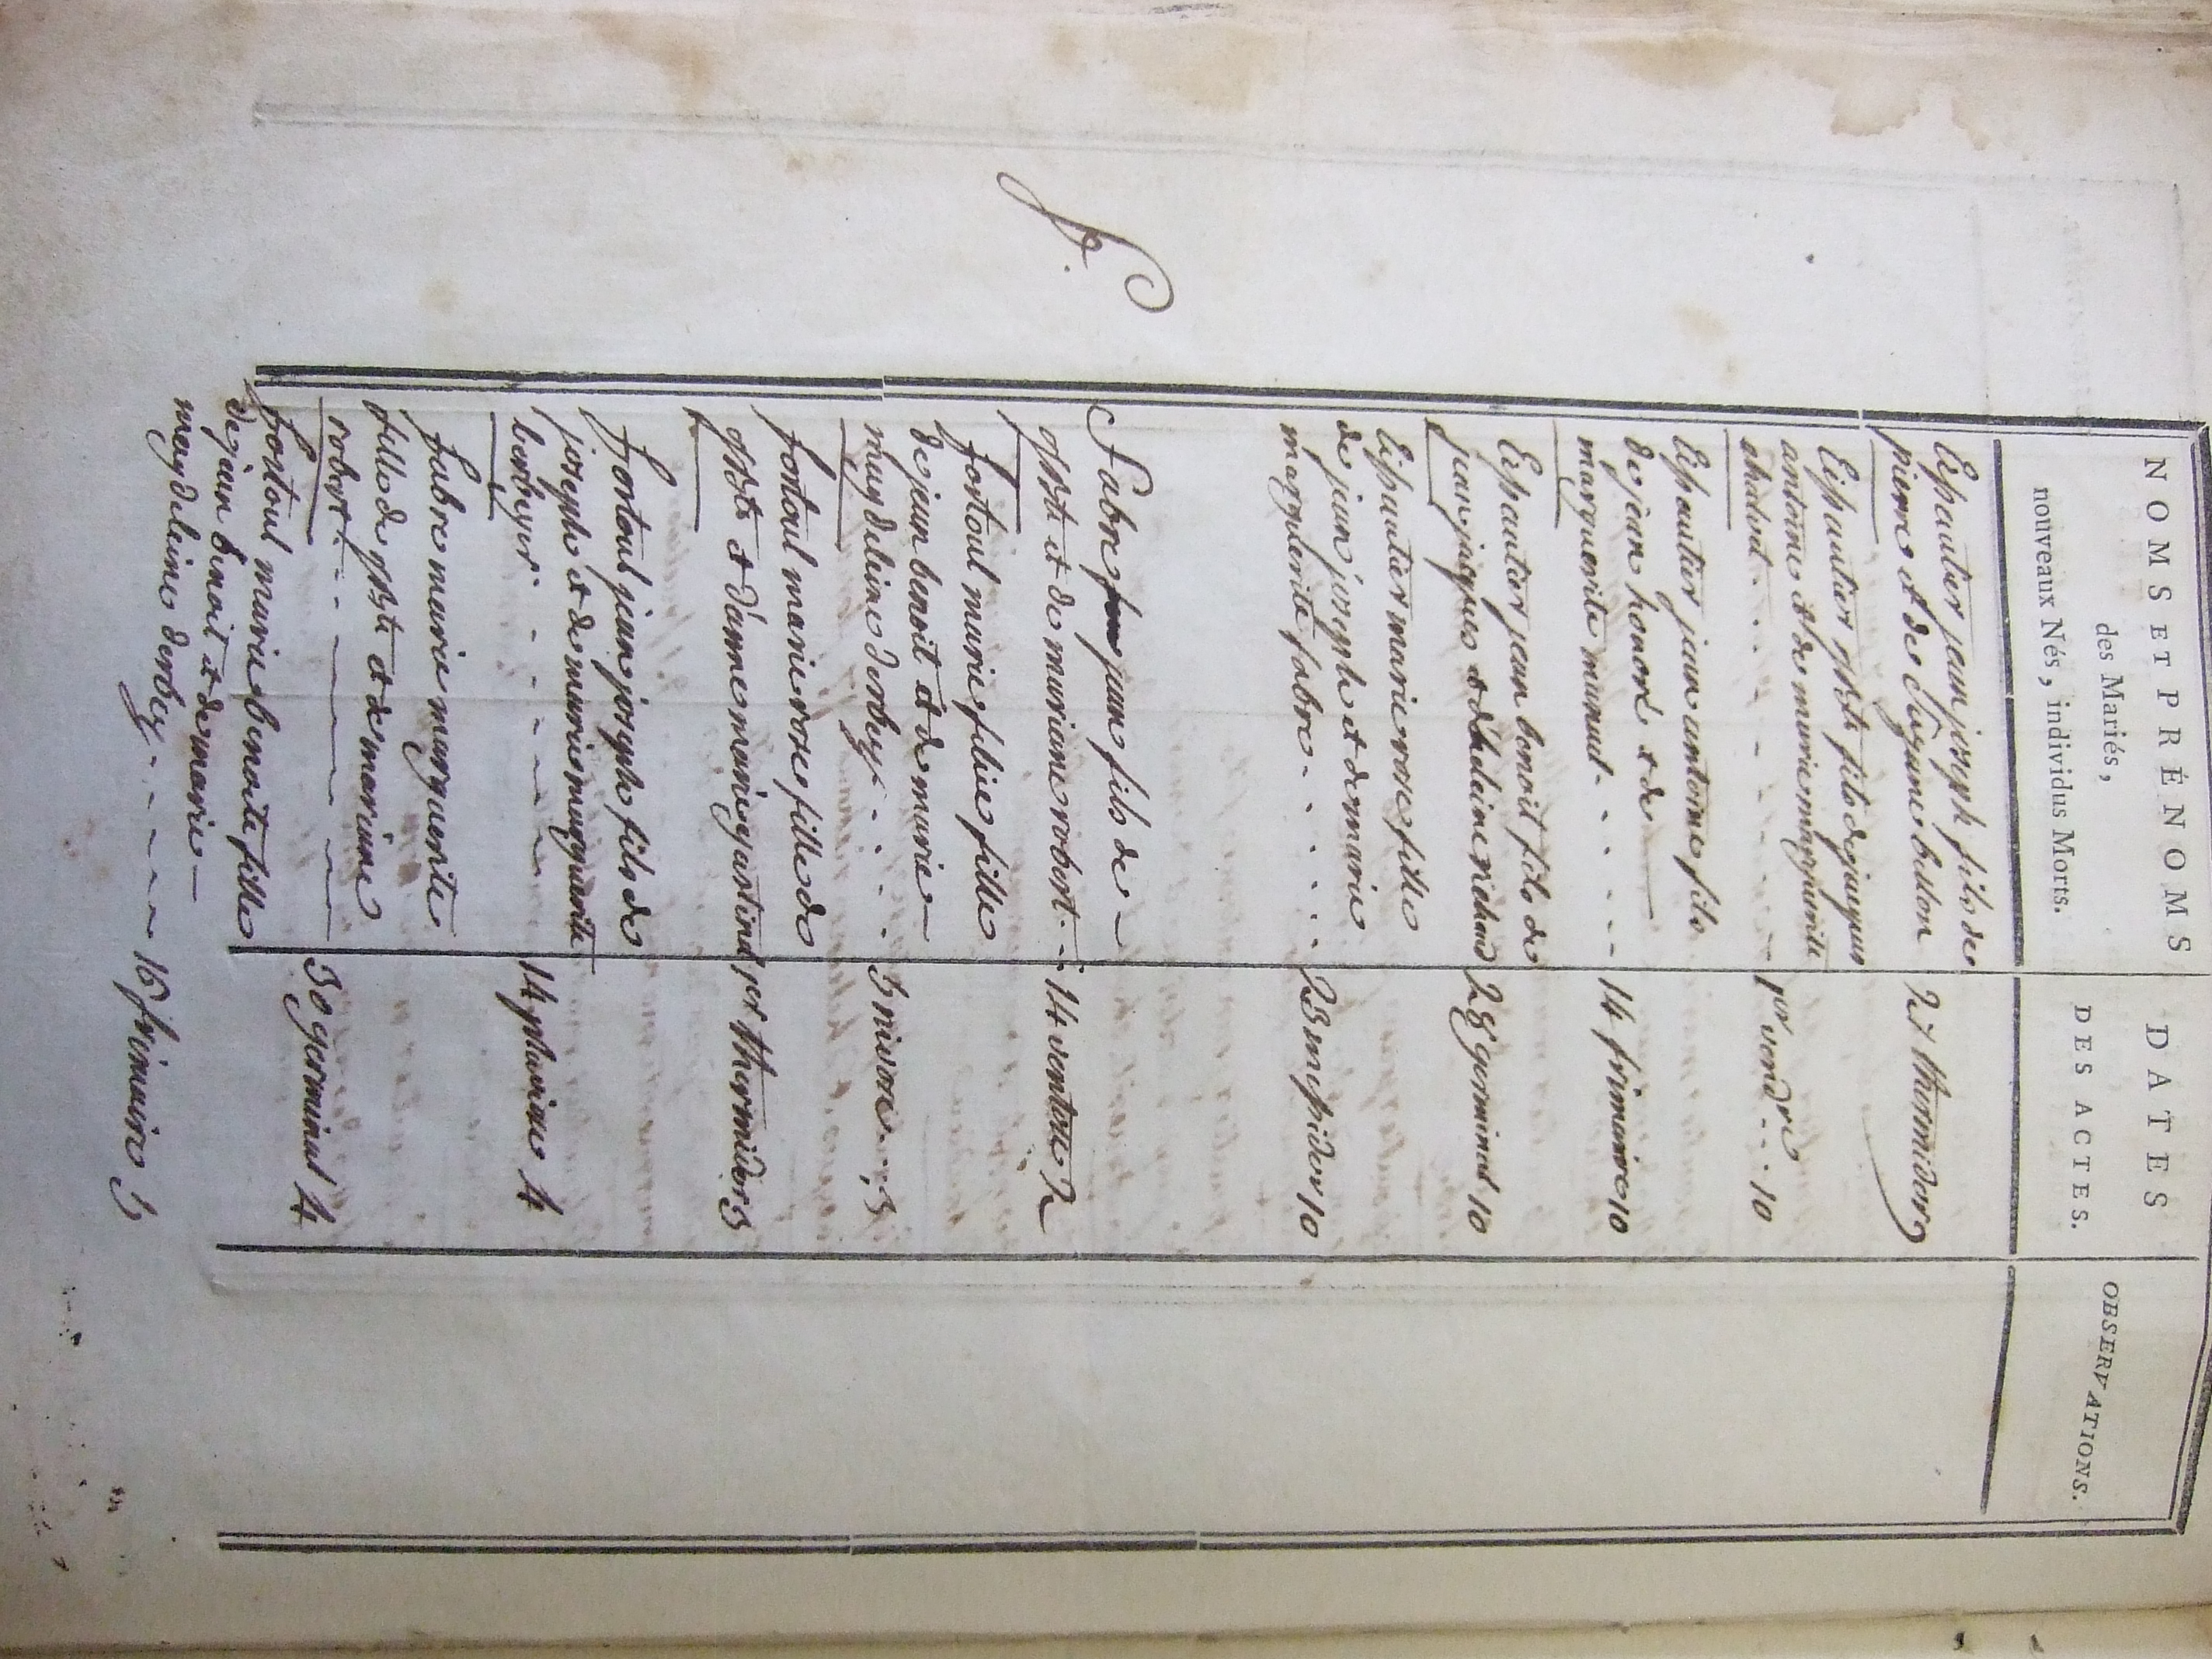 NOMS ET PRÉNOMS
des Mariés,
nouveaux Nés, individus Morts.
DATES
DES ACTES.
OBSERVATIONS.
Espautier jean joseph fils de
pierre et de Suzane bellon 27 thermidor 9
Espautier jean bte fils de jacques
antoine et de marie marguerite
chabut - - - - - 1er vendre - - 10
Espautier jean antoine fils
de jean honoré et de
marguerite munaut - - - - 14 frimaire 10
Espautier jean benoit fils de
jean jaques et d'hélaine richaud 28 germinal 10
Espautier marie rose fille
de jean joseph et de marie
marguerite fabre - - - - - 23 messidor 10
f.
Fabre jean fils de
jn bte et de mariane robert - - 14 ventose 2
fortoul marie félise fille
de jean benoit et de marie
magdeleine derbez - - - - 3 nivose - - 3
fortoul marie rose fille de
jn bte et d'anne marie gastinel 1er thermidor 3
fortoul jean joseph fils de
joseph et de marie marguerite
berbeyer - - - - - 14 pluviose 4
fabre marie marguerite
fille de jn bte et de marianne
robert - - - - - 30 germinal 4
fortoul marie benoite fille
de jean benoit et de marie
magdeleine derbez - - - - - 16 frimaire 5